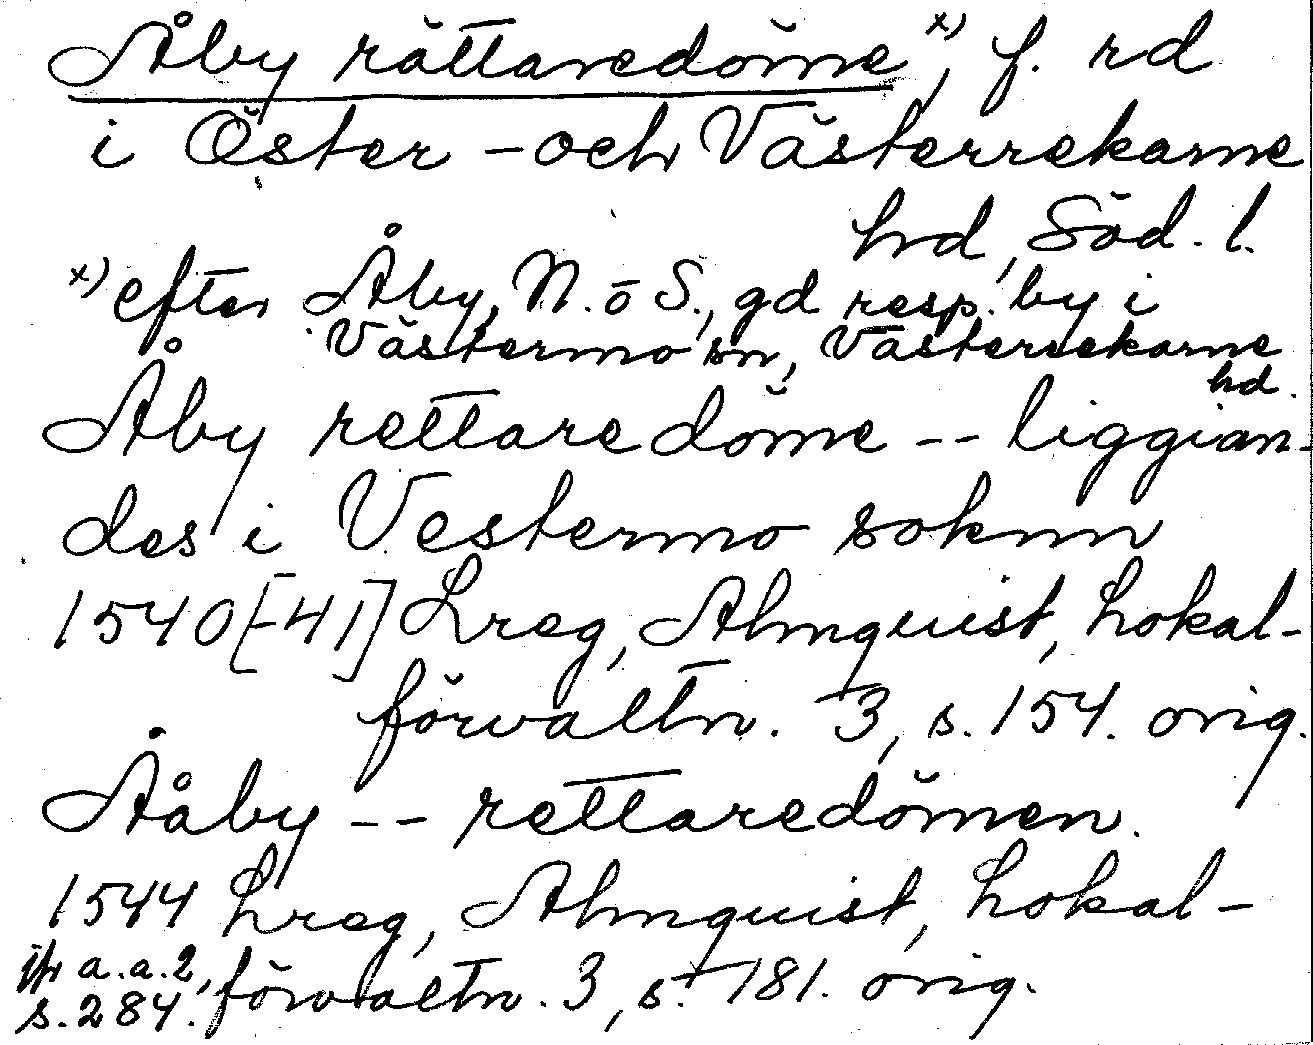 Åby rättaredöme x), f. rd
i Öster- och Västerrekarne
hd, Söd. l.
x) efter Åby, N. o S., gd resp. by i
Västermo sn, Västerrekarne
hd.
Åby rettaredöme -- liggian-
des i Vestermo soknn
1540[-41] Lreg, Almquist, Lokal-
förvaltn. 3, s. 154. orig.
Ååby -- rettaredömen.
1544 Lreg, Almquist, Lokal-
förvaltn. 3, s. 181. orig.
jfr a.a. 2,
s. 284.